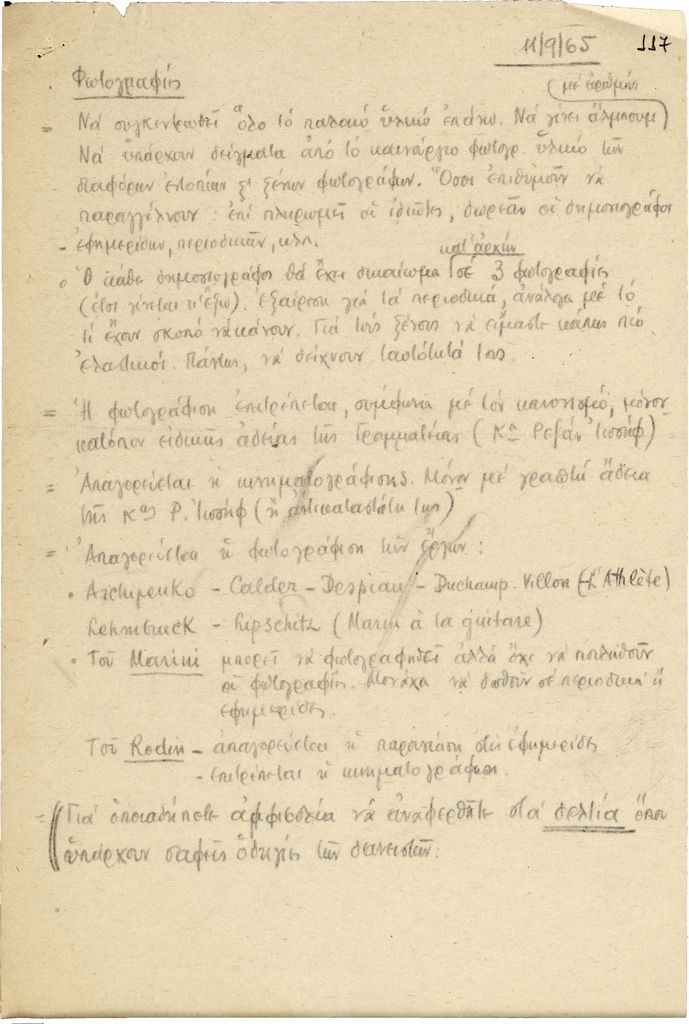 11/9/65 117
Φωτογραφίες
(μέ ἀριθμούς)
= Νά συγκεντρωθεῖ ὅλο τό παλαιό ὑλικό ἐπάνω. Νά γίνει ἄλμπουμ
Νά ὑπάρχουν δείγματα ἀπό τό καινούργιο φωτογρ. ὑλικό τῶν
διαφόρων ἐντοπίων ξένων φωτογράφων. Ὅσοι ἐπιθυμοῦν νά
παραγγέλνουν : ἐπί πληρωμεῖ οἱ ἰδιῶτες, δωρεάν οἱ δημοσιογράφοι
- ἐφημερίδων, περιοδικῶν, κλπ.
κατ' ἀρχήν
Ὁ κάθε δημοσιογράφος θά ἔχει δικαίωμα σέ 3 φωτογραφίες
(ἔτσι γίνεται κ' ἔξω). Ἐξαίρεση γιά τά περιοδικά, ἀνάλογα μέ τό
τί ἔχουν σκοπό νά κάνουν. Γιά τούς ξένους νά εἴμαστε κάπως πιό
ἐλαστικοί. Πάντως, νά δείχνουν ταυτότητά τους.
= Ἡ φωτογράφιση ἐπιτρέπεται, σύμφωνα μέ τόν κανονισμό, μόνον
κατόπιν εἰδικῆς ἀδείας τῆς Γραμματείας (Κα Ρεζάν Ἰωσήφ)
= Ἀπαγορεύεται ἡ κινηματογράφισης. Μόνον μέ γραπτή ἄδεια
τῆς Κας Ρ. Ἰωσήφ (ἤ ἀντικαταστάτη της)
= Ἀπαγορεύεται ἡ φωτογράφιση τῶν ἔργων :
• Archipenko - Calder - Despiau - Duchamp. Villon (L'Athlète)
Lehmbruck - Lipschitz (Marin à la guitare)
• Τοῦ Marini μπορεῖ νά φωτογραφηθεῖ ἀλλά ὄχι νά πουληθοῦν
οἱ φωτογραφίες. Μονάχα νά δοθοῦν σέ περιοδικά ἤ
ἐφημερίδες.
Τοῦ Rodin - ἀπαγορεύεται ἡ παρουσίαση στίς ἐφημερίδες
- ἐπιτρέπεται ἡ κινηματογράφιση.
= Γιά ὁποιαδήποτε ἀμφιβολία νά ἀναφερθῆτε στά δελτία ὅπου
ὑπάρχουν σαφεῖς ὁδηγίες τῶν δανειστῶν.